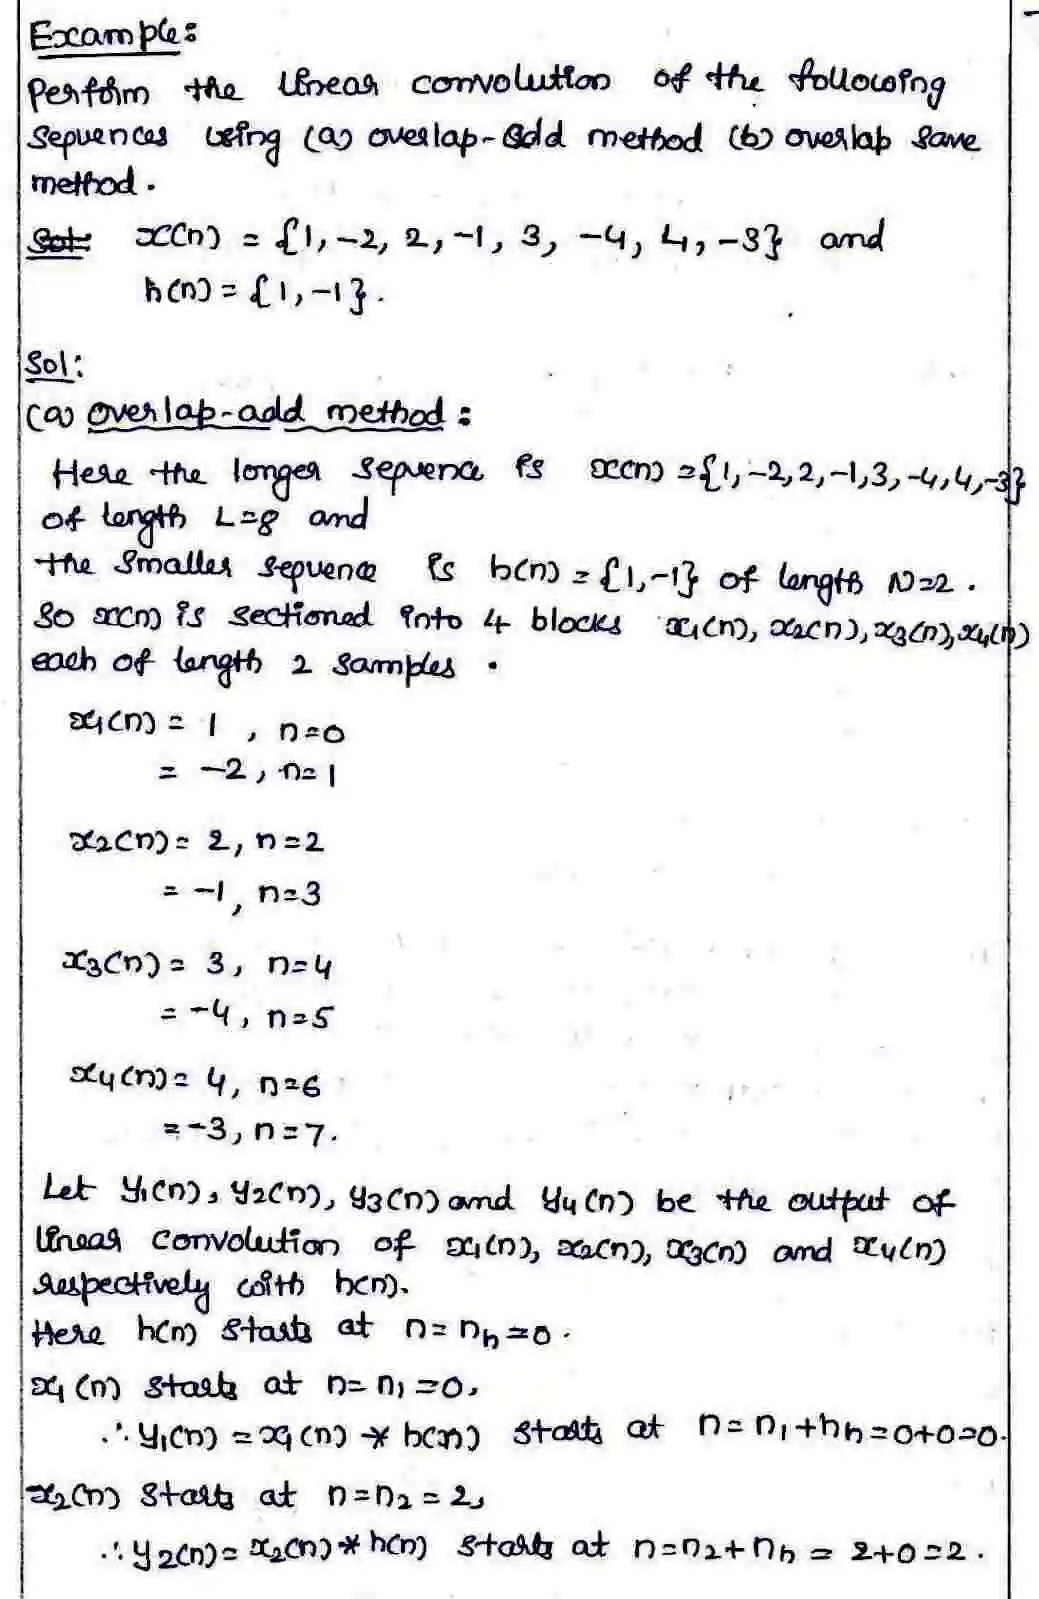 Example:
Perform the linear convolution of the following
sequences using (a) overlap-add method (b) overlap save
method.
Sol: x(n) = {1, -2, 2, -1, 3, -4, 4, -3} and
h(n) = {1, -1}.
Sol:
(a) overlap-add method:
Here the longer sequence is x(n) = {1, -2, 2, -1, 3, -4, 4, -3}
of length L=8 and
the smaller sequence is h(n) = {1, -1} of length N=2.
So x(n) is sectioned into 4 blocks x1(n), x2(n), x3(n), x4(n)
each of length 2 samples.
x1(n) = 1, n=0
= -2, n=1
x2(n) = 2, n=2
= -1, n=3
x3(n) = 3, n=4
= -4, n=5
x4(n) = 4, n=6
= -3, n=7.
Let y1(n), y2(n), y3(n) and y4(n) be the output of
linear convolution of x1(n), x2(n), x3(n) and x4(n)
respectively with h(n).
Here h(n) starts at n = nh = 0.
x1(n) starts at n = n1 = 0,
∴ y1(n) = x1(n) * h(n) starts at n = n1+nh = 0+0=0.
x2(n) starts at n = n2 = 2,
∴ y2(n) = x2(n) * h(n) starts at n = n2+nh = 2+0=2.